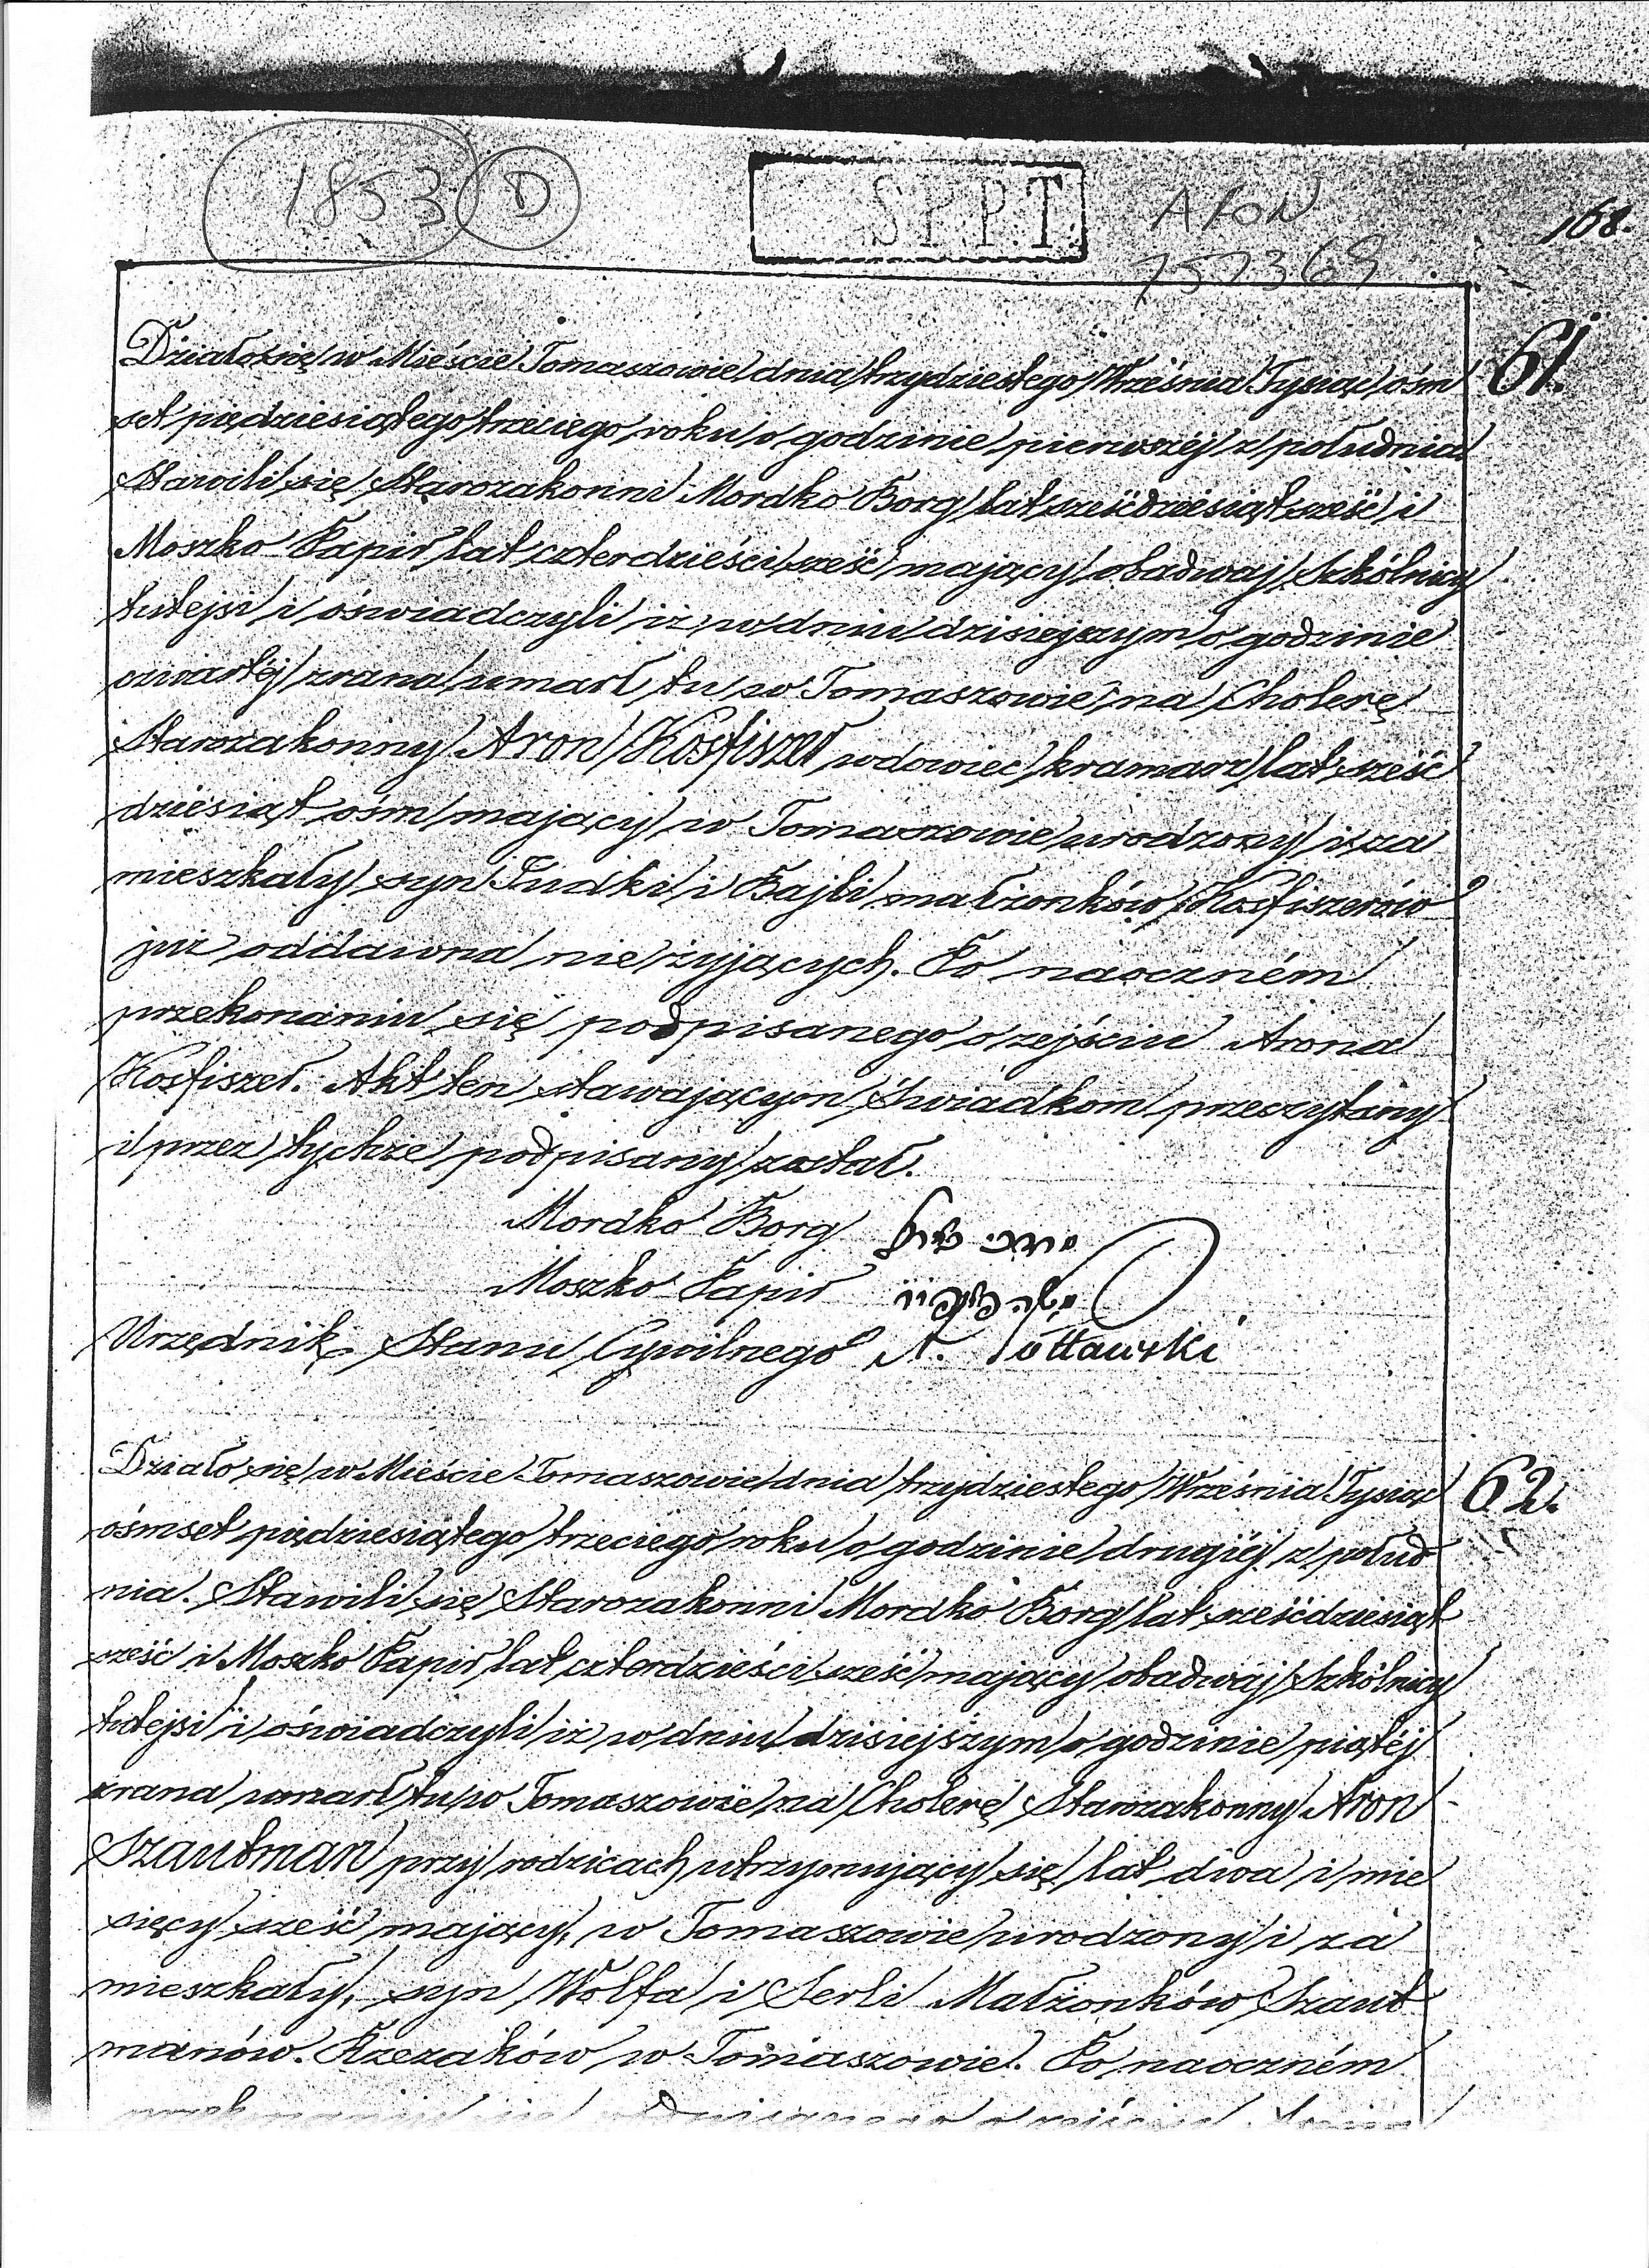 1853 D
S.P.P.T.
ARON
757369
168.
61.
Działo się w Mieście Tomaszowie dnia trzydziestego Września Tysiąc ośm
set pięćdziesiątego trzeciego roku o godzinie pierwszéj z południa
Stawili się Starozakonni Mordko Borg lat sześćdziesiąt sześć i
Moszko Papir lat czterdzieści sześć mający obadwaj Szkólnicy
tutejsi i oświadczyli iż w dniu dzisiejszym o godzinie
czwartéj zrana umarł tu w Tomaszowie na Cholerę
Starozakonny Aron Kosfiszer wdowiec kramarz lat sześć
dziesiąt ośm mający w Tomaszowie urodzony i za
mieszkały syn Judki i Bajli małżonków Kosfiszerów
już oddawna nie żyjących. Po naoczném
przekonaniu się podpisanego o zejściu Arona
Kosfiszer. Akt ten stawającym Świadkom przeczytany
i przez tychże podpisany został.
Mordko Borg
Moszko Papir
Urzędnik Stanu Cywilnego N. Połtawski
62.
Działo się w Mieście Tomaszowie dnia trzydziestego Września Tysiąc
ośmset pięćdziesiątego trzeciego roku o godzinie drugiéj z połud
nia. Stawili się Starozakonni Mordko Borg lat sześćdziesiąt
sześć i Moszko Papir lat czterdzieści sześć mający obadwaj Szkólnicy
tutejsi i oświadczyli iż w dniu dzisiejszym o godzinie piątéj
zrana umarł tu w Tomaszowie na Cholerę Starozakonny Aron
Szautman przy rodzicach utrzymujący się lat dwa i mie
sięcy sześć mający, w Tomaszowie urodzony i za
mieszkały, syn Wolfa i Serli Małżonków Szaut
manów. Rzezaków w Tomaszowie. Po naoczném